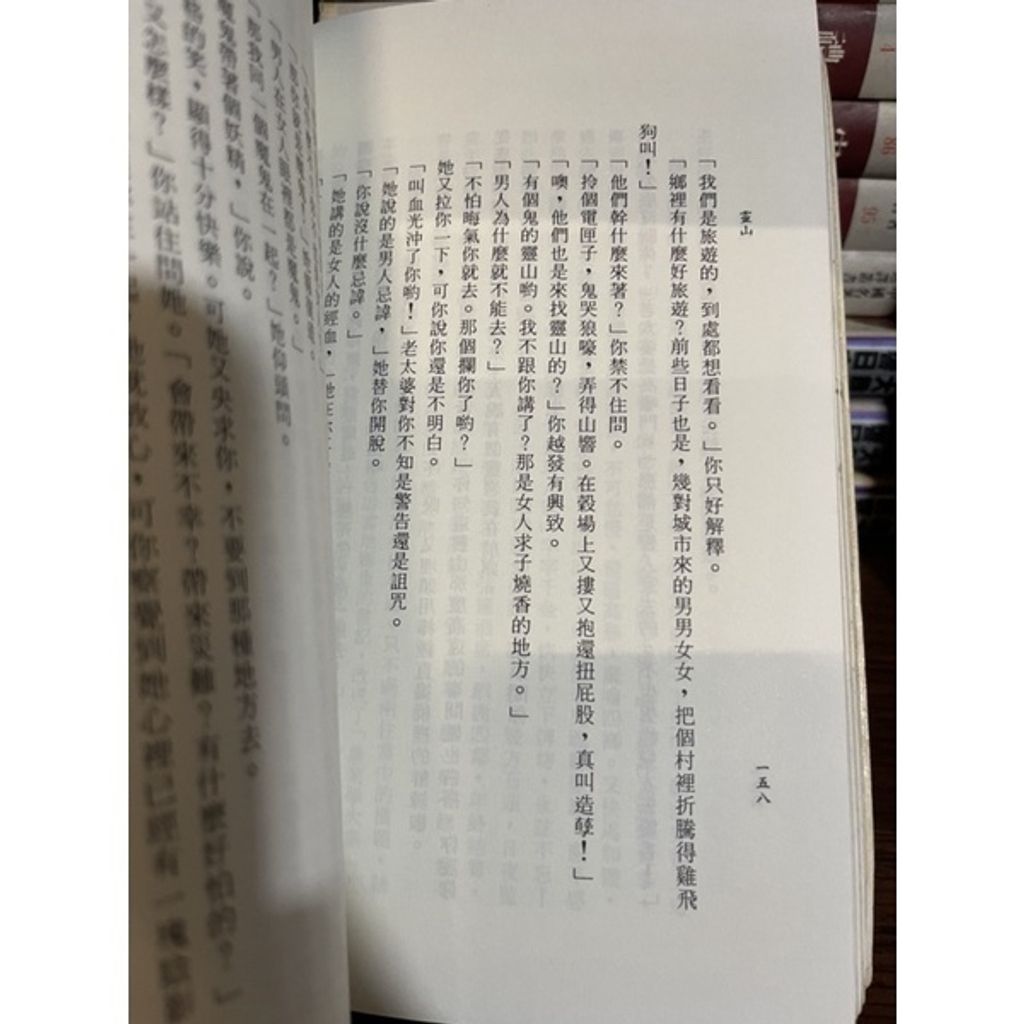 靈山
一五八
「我們是旅遊的，到處都想看看。」你只好解釋。
「鄉裡有什麼好旅遊？前些日子也是，幾對城市來的男男女女，把個村裡折騰得雞飛
狗叫！」
「他們幹什麼來著？」你禁不住問。
「拎個電匣子，鬼哭狼嚎，弄得山響。在穀場上又摟又抱還扭屁股，真叫造孽！」
「噢，他們也是來找靈山的？」你越發有興致。
「有個鬼的靈山喲。我不跟你講了？那是女人求子燒香的地方。」
「男人為什麼就不能去？」
「不怕晦氣你就去。那個攔你了喲？」
她又拉你一下，可你說你還是不明白。
「叫血光沖了你喲！」老太婆對你不知是警告還是詛咒。
「她說的是男人忌諱，」她替你開脫。
「你說沒什麼忌諱。」
「她講的是女人的經血，
「男人在女人眼裡都是魔鬼。」
「那我同一個魔鬼在一起？」她仰頭問。
魔鬼帶著個妖精，」你說。
的笑，顯得十分快樂。可她又央求你，不要到那種地方去。
又怎麼樣？」你站住問她。「會帶來不幸？帶來災難？有什麼好怕的？」
心，可你察覺到她心裡已經有一塊陰影